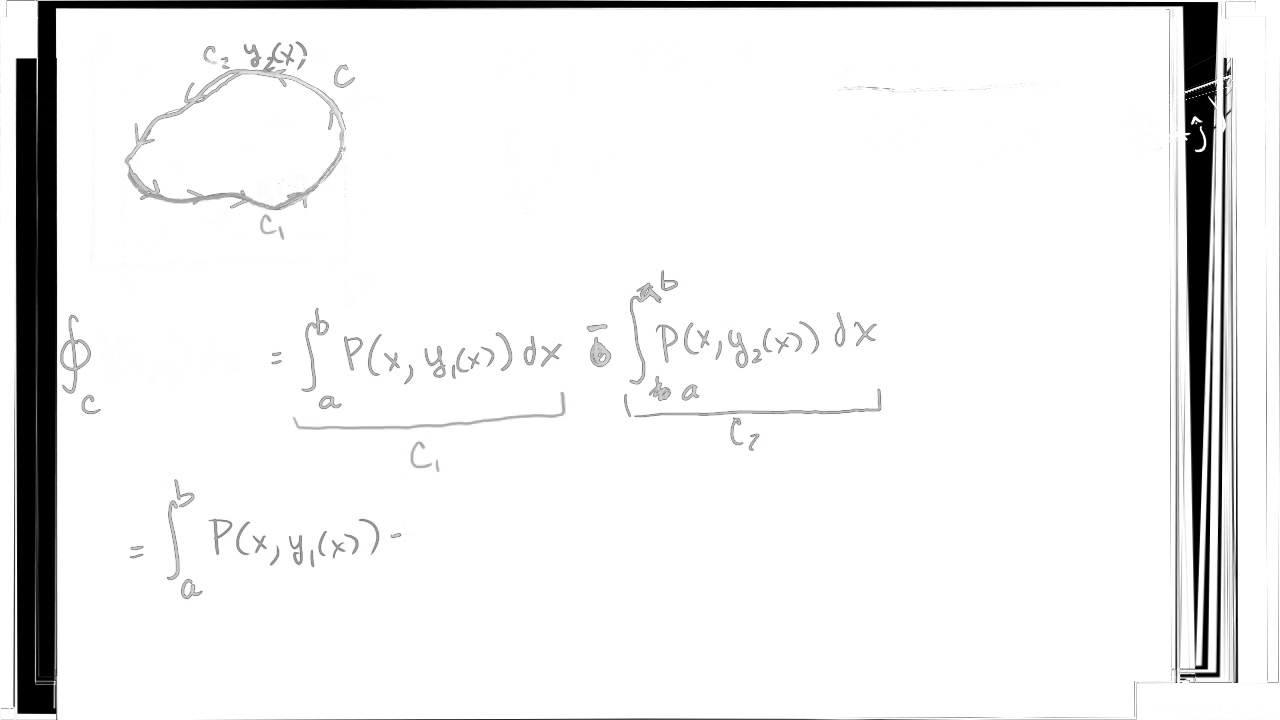 C₂ y₂(x)
C
C₁
+ĵ
∮_C = ∫_a^b P(x, y₁(x)) dx - ∫_a^b P(x, y₂(x)) dx
C₁ C₂
= ∫_a^b P(x, y₁(x)) -